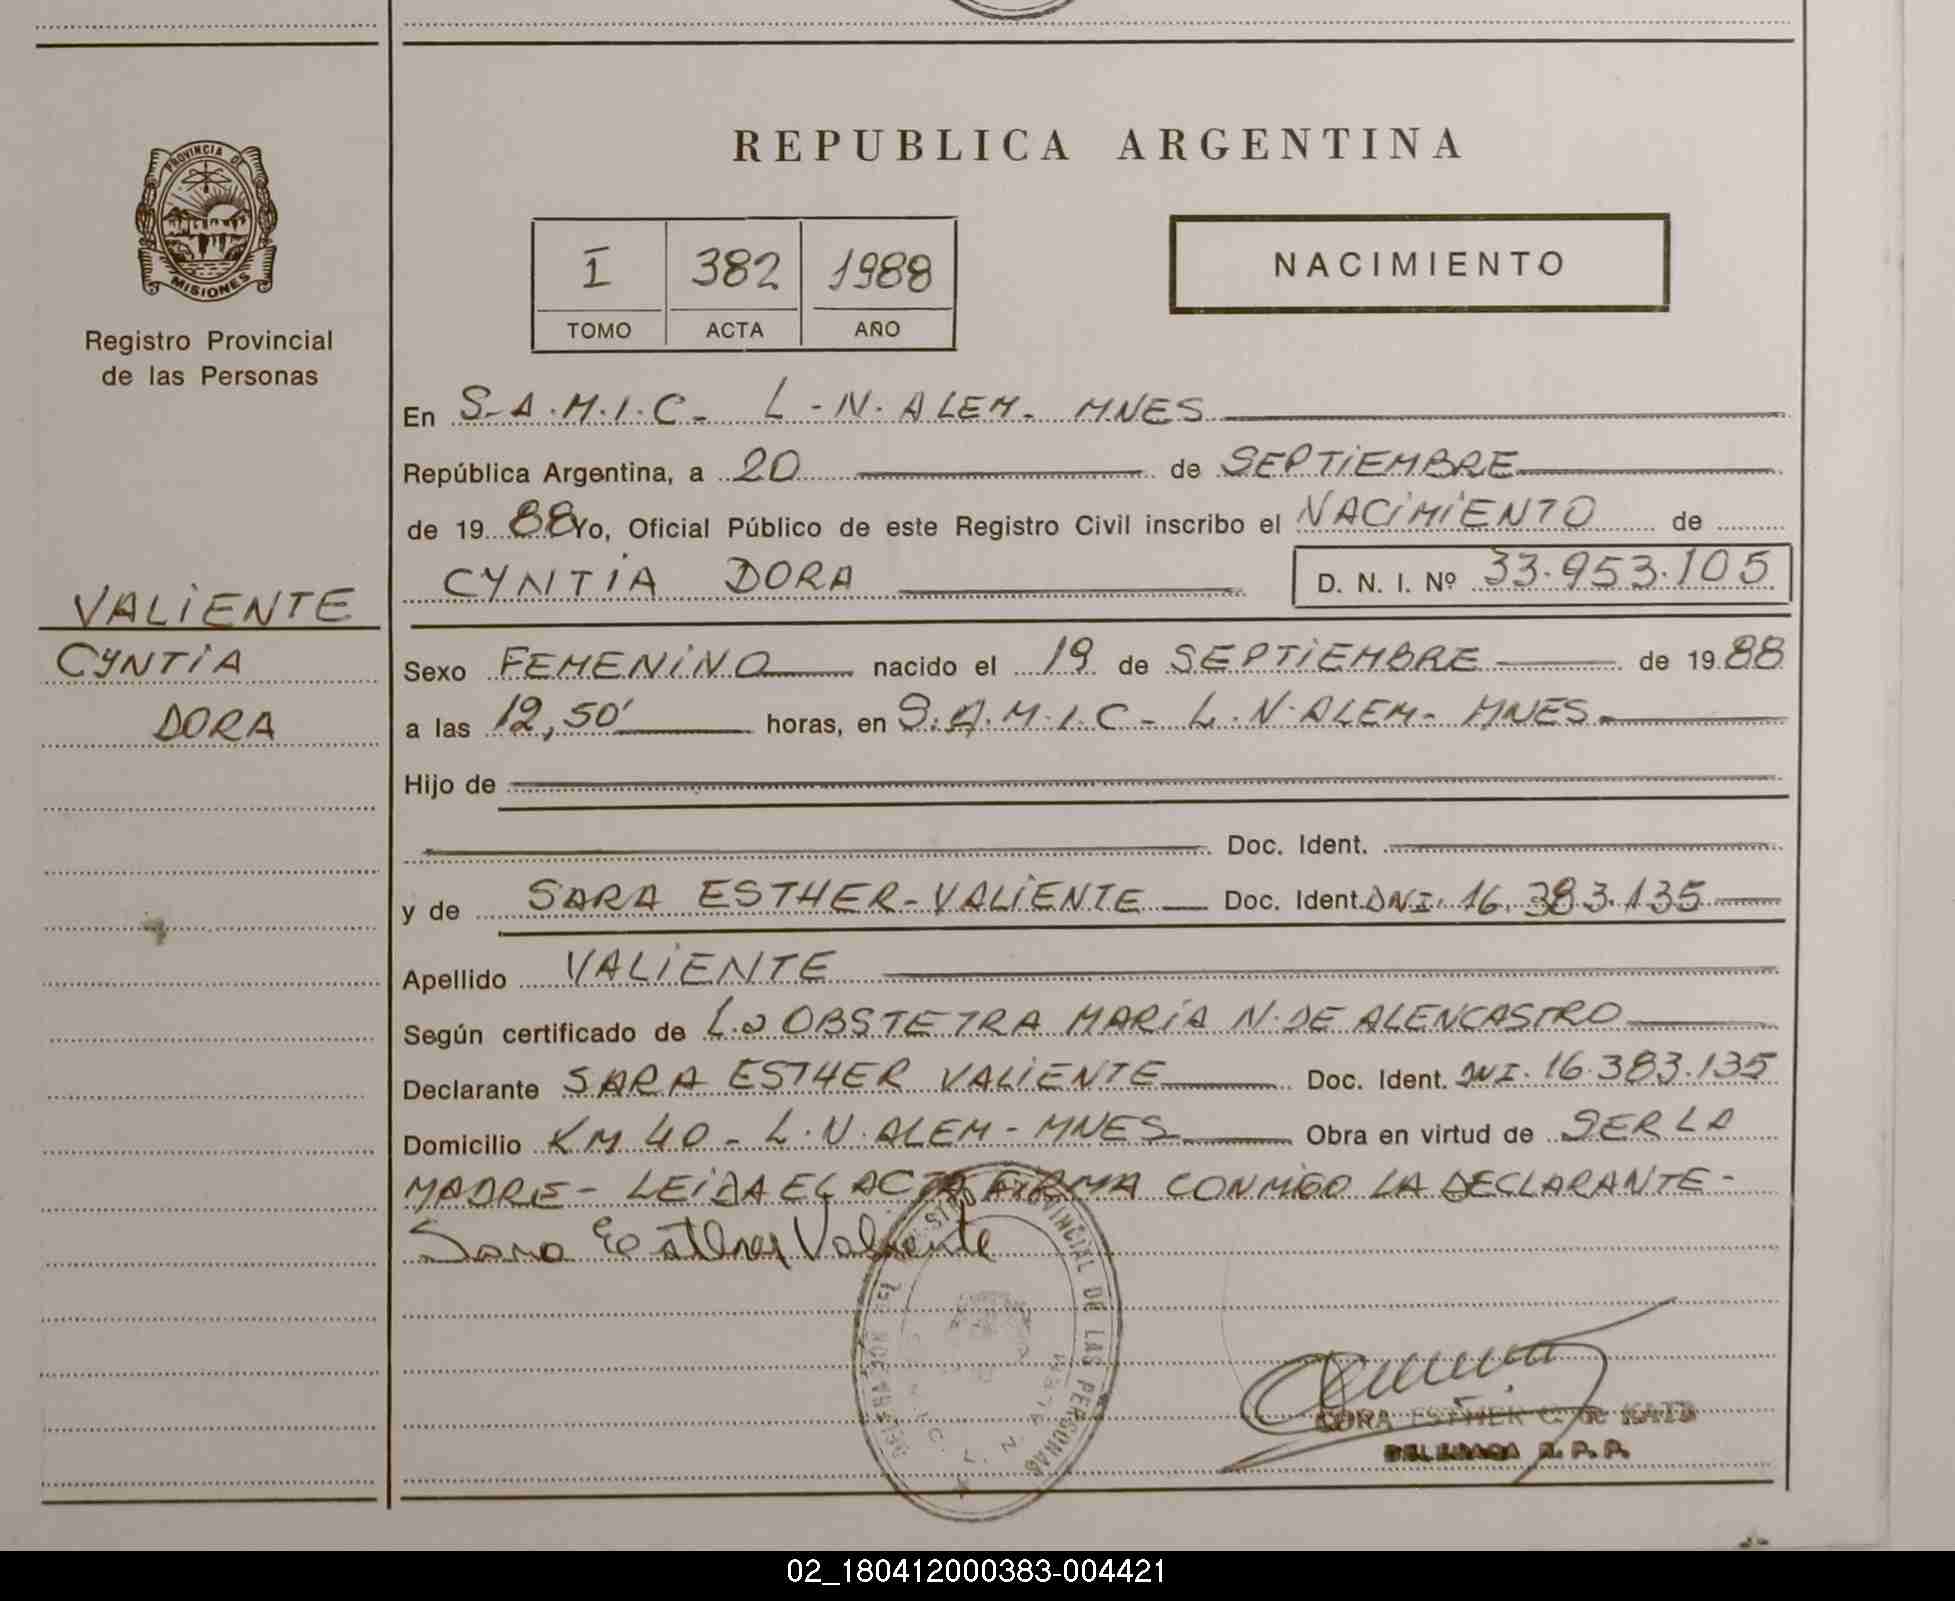 PROVINCIA DE
MISIONES
Registro Provincial
de las Personas
VALIENTE
CYNTIA
DORA
REPUBLICA ARGENTINA
I 382 1988
TOMO ACTA AÑO
NACIMIENTO
En S.A.M.I.C- L-N.ALEM- MNES
República Argentina, a 20 de SEPTIEMBRE
de 19 88 Yo, Oficial Público de este Registro Civil inscribo el NACIMIENTO de
CYNTIA DORA D. N. I. Nº 33.953.105
Sexo FEMENINO nacido el 19 de SEPTIEMBRE de 19 88
a las 12,50' horas, en S.A.M.I.C- L.N.ALEM- MNES-
Hijo de
Doc. Ident.
y de SARA ESTHER-VALIENTE Doc. Ident. DNI. 16.383.135
Apellido VALIENTE
Según certificado de La OBSTETRA MARÍA N. DE ALENCASTRO
Declarante SARA ESTHER VALIENTE Doc. Ident. DNI. 16.383.135
Domicilio KM 40 - L.N.ALEM - MNES Obra en virtud de SER LA
MADRE- LEIDA EL ACTA FIRMA CONMIGO LA DECLARANTE-
Sara Esther Valiente
PROVINCIAL DE LAS PERSONAS
ESTHER C. de
R. P. P.
02_180412000383-004421